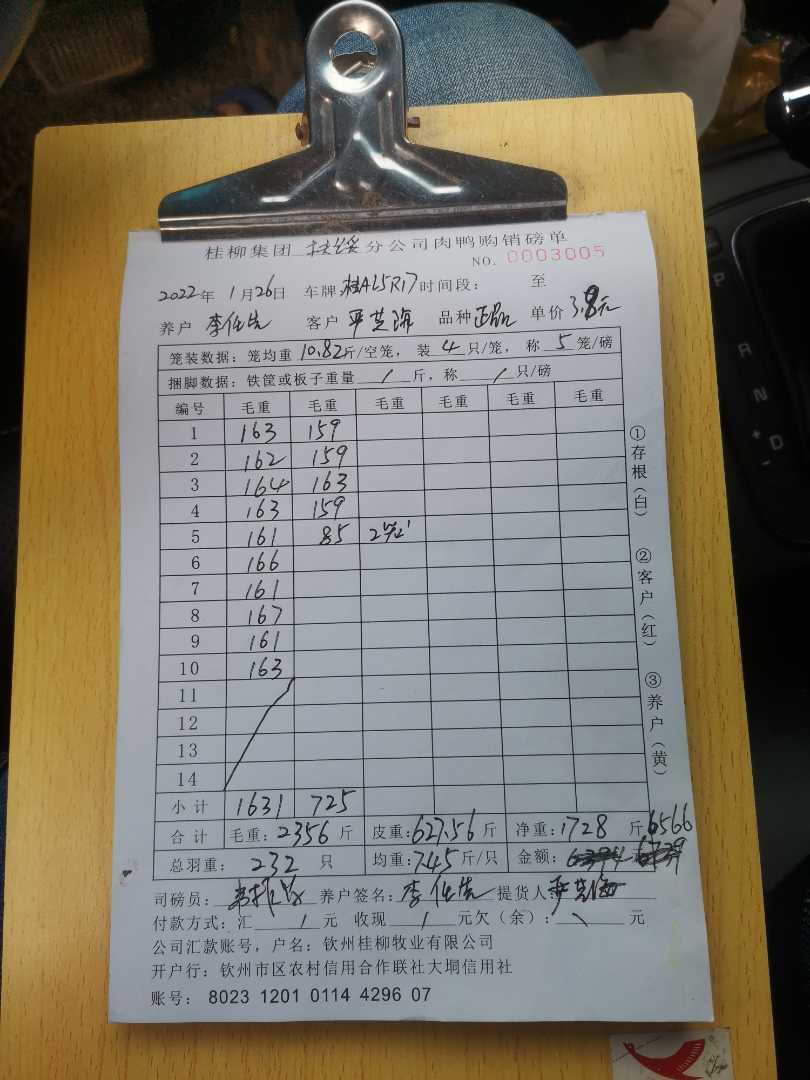 桂柳集团 扶绥 分公司肉鸭购销磅单
NO. 0003005
2022年 1月26日 车牌:桂AL5R17 时间段: 至
养户 李仕先 客户 严芝海 品种 正品 单价 3.8元
笼装数据:笼均重 10.82斤/空笼, 装 4 只/笼, 称 5 笼/磅
捆脚数据:铁筐或板子重量 / 斤,称 / 只/磅
编号 毛重 毛重 毛重 毛重 毛重 毛重
1 163 159
2 162 159
3 164 163
4 163 159
5 161 85
6 166
7 161
8 167
9 161
10 163
11
12
13
14
小计 1631 725
合计 毛重:2356 斤 皮重:627.56 斤 净重:1728 斤 6566
总羽重: 232 只 均重:7.45斤/只 金额:
司磅员: 养户签名:李仕先 提货人:严芝海
付款方式:汇 / 元 收现 / 元欠(余): \ 元
公司汇款账号,户名:钦州桂柳牧业有限公司
开户行:钦州市区农村信用合作联社大垌信用社
账号: 8023 1201 0114 4296 07
①存根(白) ②客户(红) ③养户(黄)
P
R
N
+ D
-